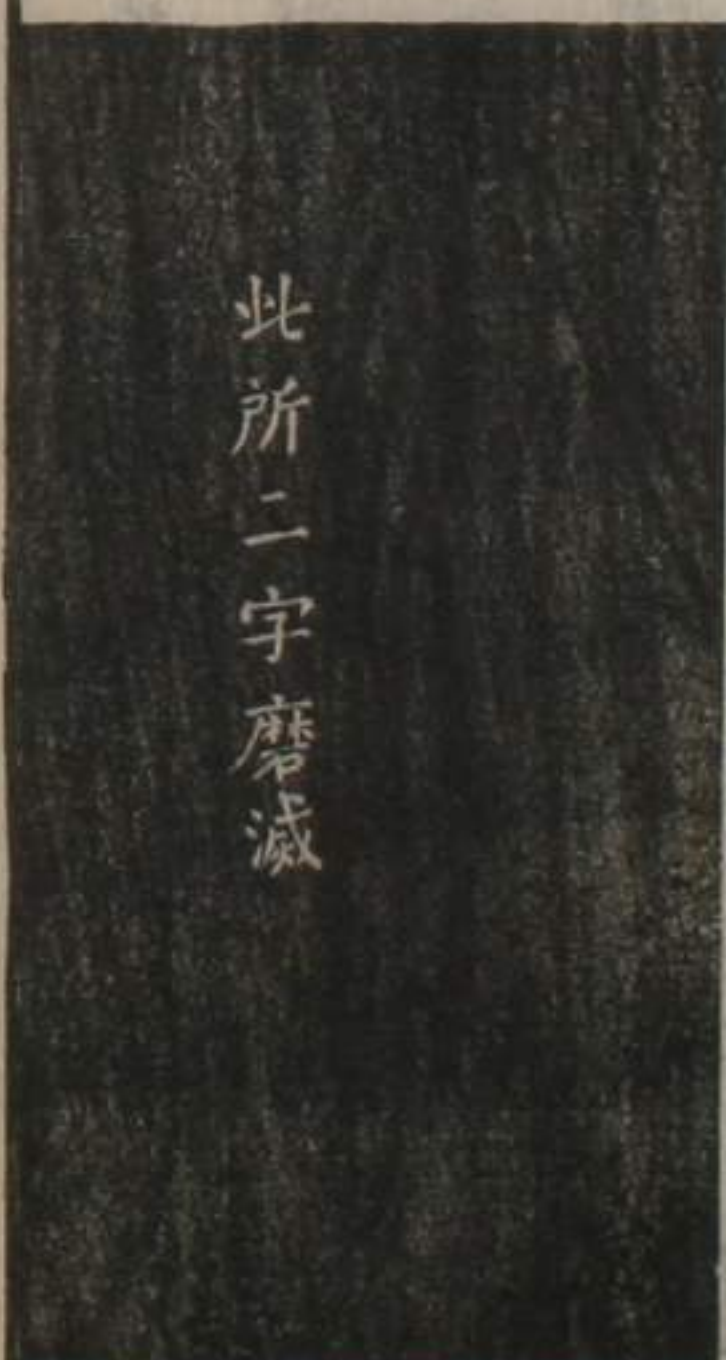 此所二字磨滅